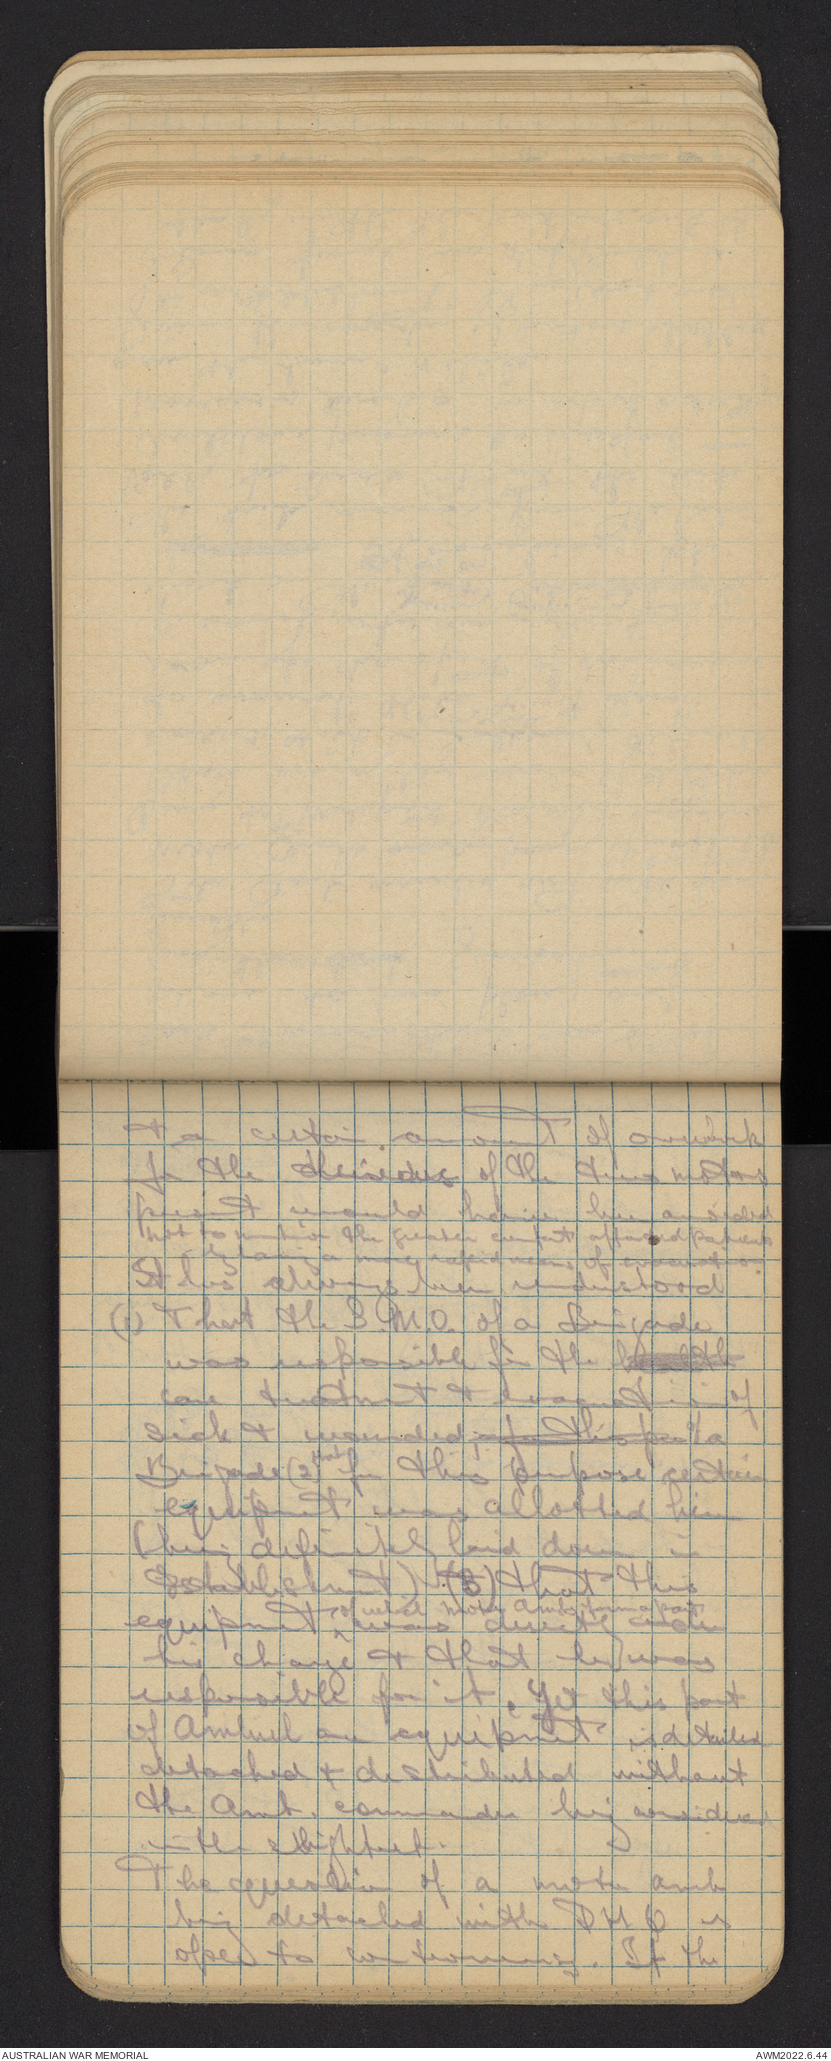 & a certain amount of overwork
for the decisions of the three motors
present would have been avoided
not to mention the greater comfort afforded patients
by having a more rapid means of evacuation.
It has always been understood
(1) That the S.M.O. of a Brigade
was responsible for the health
care treatment & evacuation of
sick & wounded, for this pur of a
Brigade (2) that for this purpose certain
equipment was allotted him
(being definitely laid down in
Establishment) (3) that this
equipment, of which motor ambs form a part
was directly under
his charge & that he was
responsible for it. Yet this part
of equipment is detailed
detached & distributed without
the Amb. commander being considered
in the slightest.
The question of a motor amb
being detached with D.H.Q is
open to controversy. If the
AUSTRALIAN WAR MEMORIAL
AWM2022.6.44